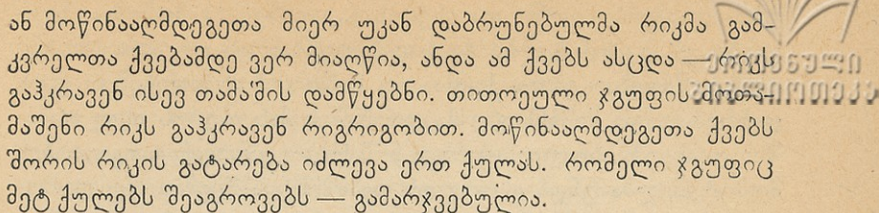 ან მოწინააღმდეგეთა მიერ უკან დაბრუნებულმა რიკმა გამ-
კვრელთა ქვებამდე ვერ მიაღწია, ანდა ამ ქვებს ასცდა — რიკს
გაჰკრავენ ისევ თამაშის დამწყებნი. თითოეული ჯგუფის მოთა-
მაშენი რიკს გაჰკრავენ რიგრიგობით. მოწინააღმდეგეთა ქვებს
შორის რიკის გატარება იძლევა ერთ ქულას. რომელი ჯგუფიც
მეტ ქულებს შეაგროვებს — გამარჯვებულია.